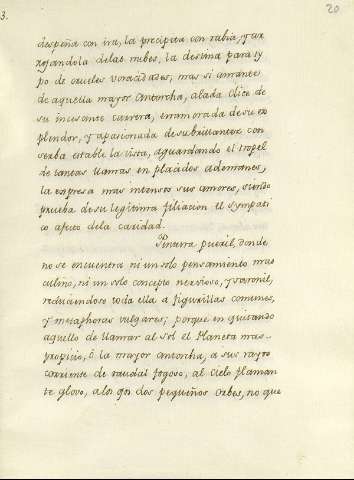 3.
20
despeña con ira, la precipita con rabia, y ar
rojandola delas nubes, la destina para sy
po de crueles voracidades; mas si amante
de aquella mayor Antorcha, alada Clice de
su incesante carrera, enamorada de su ex
plendor, y apasionada de su brillantez con
serba estable la vista, aguardando el tropel
de tantas llamas en placidos ademanes,
la expresa mas intensos sus amores, siendo
prueba de su legitima filiacion el sympati
co afecto dela caridad.
Pintura pueril, donde
no se encuentra ni un solo pensamiento mas
culino, ni un solo concepto nervioso, y varonil,
reduciendose toda ella a figurillas comunes,
y metaphoras vulgares; porque en quitando
aquello de llamar al sol el Planeta mas
propicio, ô la mayor antorcha, a sus rayos
corriente de raudal fogoso, al Cielo flaman
te globo, a los ojos dos pequeños Orbes, no que